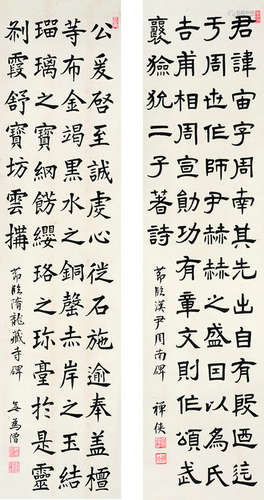 君諱宙字周南其先出自有殷迺迄
于周世作師尹赫赫之盛因以為氏
吉甫相周宣勛功有章文則作頌武
襄獫狁二子著詩
節臨漢尹周南碑
禪俠
公爰啓至誠虔心從石施逾奉蓋檀
等布金竭黑水之銅罄赤岸之玉結
瑠璃之寶網飾纓珞之珎臺於是靈
剎霞舒寶坊雲搆
節臨隋龍藏寺碑